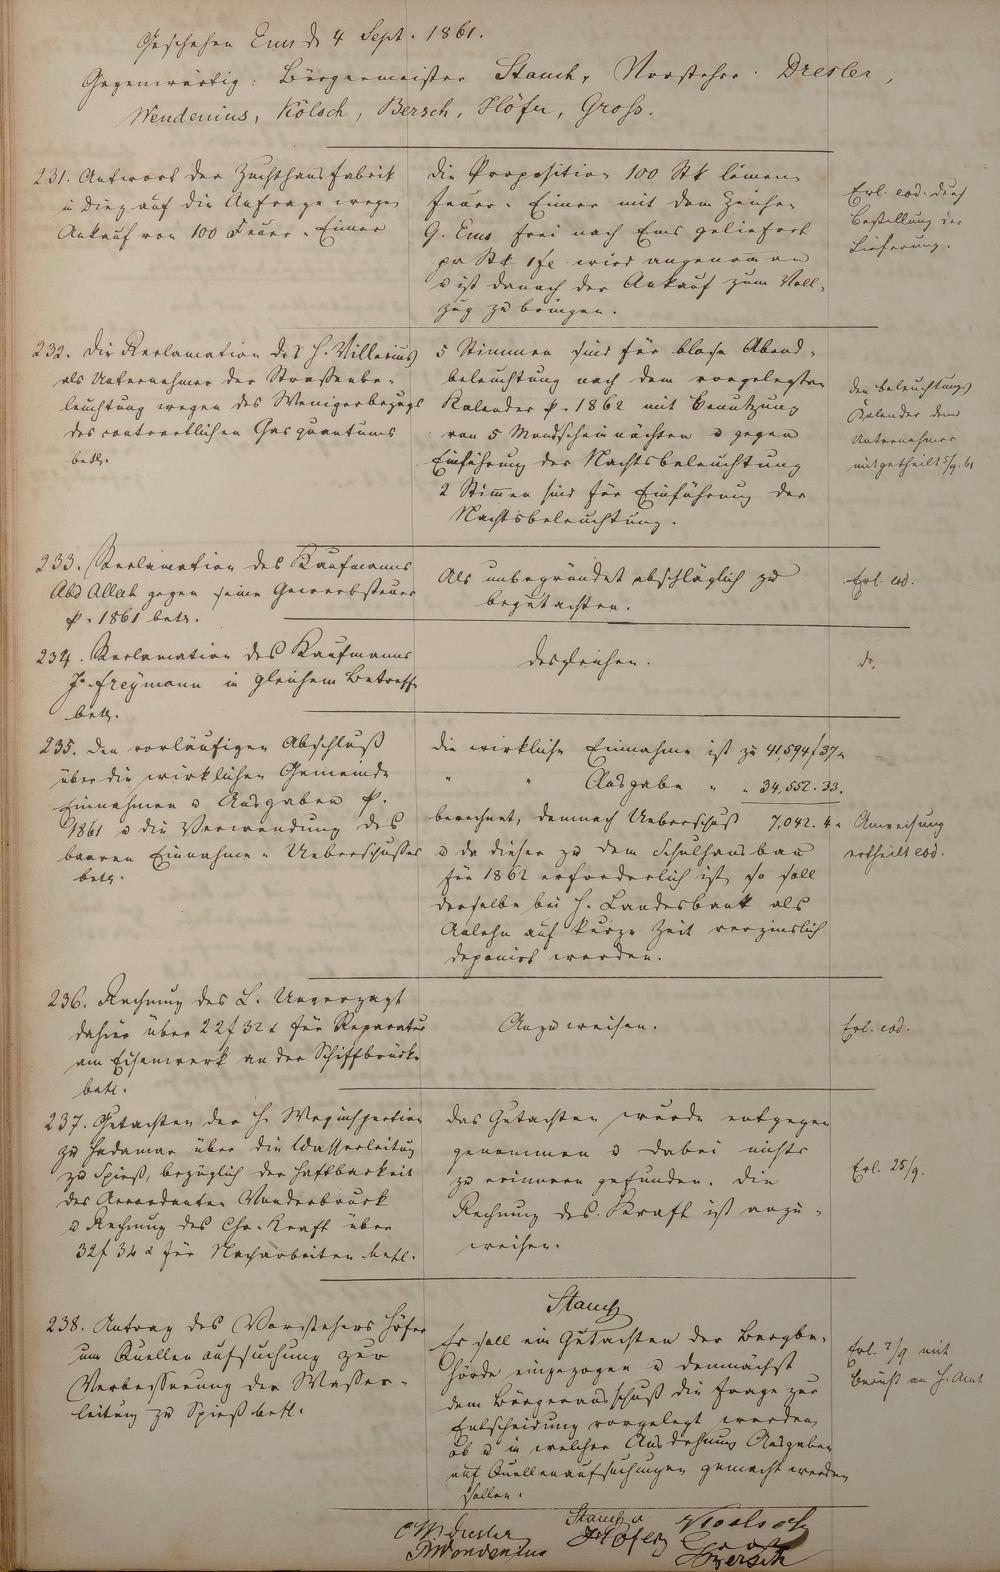 Geschehen Ems d. 4 Sept. 1861.
Gegenwärtig: Bürgermeister Stauch, Vorsteher: Dresler,
Wendenius, Kölsch, Bersch, Höfer, Gross.
231. Antwort der Zuchthausfabrik
in Diez auf die Anfrage wegen
Ankauf von 100 Feuer-Eimer
die Proposition 100 Stk leinen
Feuer-Eimer mit dem Zeichen
G. Ems frei nach Ems geliefert
pr Stk 1 fl wird angenommen
u ist danach der Ankauf zum Voll-
zug zu bringen.
Erl. eod. durch
Bestellung der
Lieferung.
232. Die Reclamation des H. Villerius
als Unternehmer der Straßenbe-
leuchtung wegen des Wenigerbezugs
des contractlichen Gasquantums
betr.
5 Stimmen sind für blose Abend-
beleuchtung nach dem vorgelegten
Kalender p. 1862 mit Benutzung
von 5 Mondscheinnächten u gegen
Einführung der Nachtsbeleuchtung
2 Stimmen sind für Einführung der
Nachtsbeleuchtung.
den Beleuchtungs
Kalender dem
Unternehmer
mitgetheilt 5/9. 61
233. Reclamation des Kaufmanns
Abd Allah gegen seine Gewerbsteuer
p. 1861 betr.
Als unbegründet abschläglich zu
begutachten.
Erl. eod.
234. Reclamation des Kaufmanns
J. Freymann in gleichem Betreff
betr.
desgleichen.
do.
235. den vorläufigen Abschluß
über die wirklichen Gemeinde
Einnahmen u Ausgaben p.
1861 u die Verwendung des
baaren Einnahme-Ueberschusses
betr.
die wirkliche Einnahme ist zu 41,594 f 37 x
" " Ausgabe " " 34,552. 33.
berechnet, demnach Ueberschuß 7,042. 4 x
u da dieser zu dem Schulhausbau
für 1862 erforderlich ist, so soll
derselbe bei H. Landesbank als
Anlehn auf kurze Zeit verzinslich
deponirt werden.
Anweisung
ertheilt eod.
236. Rechnung des L. Unverzagt
dahier über 22 f 32 x für Reparatur
am Eisenwerk an der Schiffbrücke
betr.
Anzuweisen.
Erl. eod.
237. Gutachten der H. Weginspection
zu Hadamar über die Wasserleitung
zu Spieß, bezüglich der Haftbarkeit
des Accordanten Vanderbruck
u Rechnung des Chr. Kraft über
32 f 34 x für Nacharbeiten betr.
das Gutachten wurde entgegen
genommen u dabei nichts
zu erinnern gefunden. die
Rechnung des Kraft ist anzu-
weisen.
Erl. 25/9.
Stauch
238. Antrag des Vorstehers Höfer
um Quellenaufsuchung zur
Verbesserung der Wasser-
leitung zu Spieß betr.
Es soll ein Gutachten der Bergbe-
hörde eingezogen u demnächst
dem Bürgerausschuß die Frage zur
Entscheidung vorgelegt werden,
ob u in welcher Ausdehnung Ausgaben
auf Quellenaufsuchungen gemacht werden
sollen.
Erl. 7/9 mit
Bericht an H. Amt
Stauch
Dresler
Höfer
Koelsch
Wendenius
Gross
Bersch